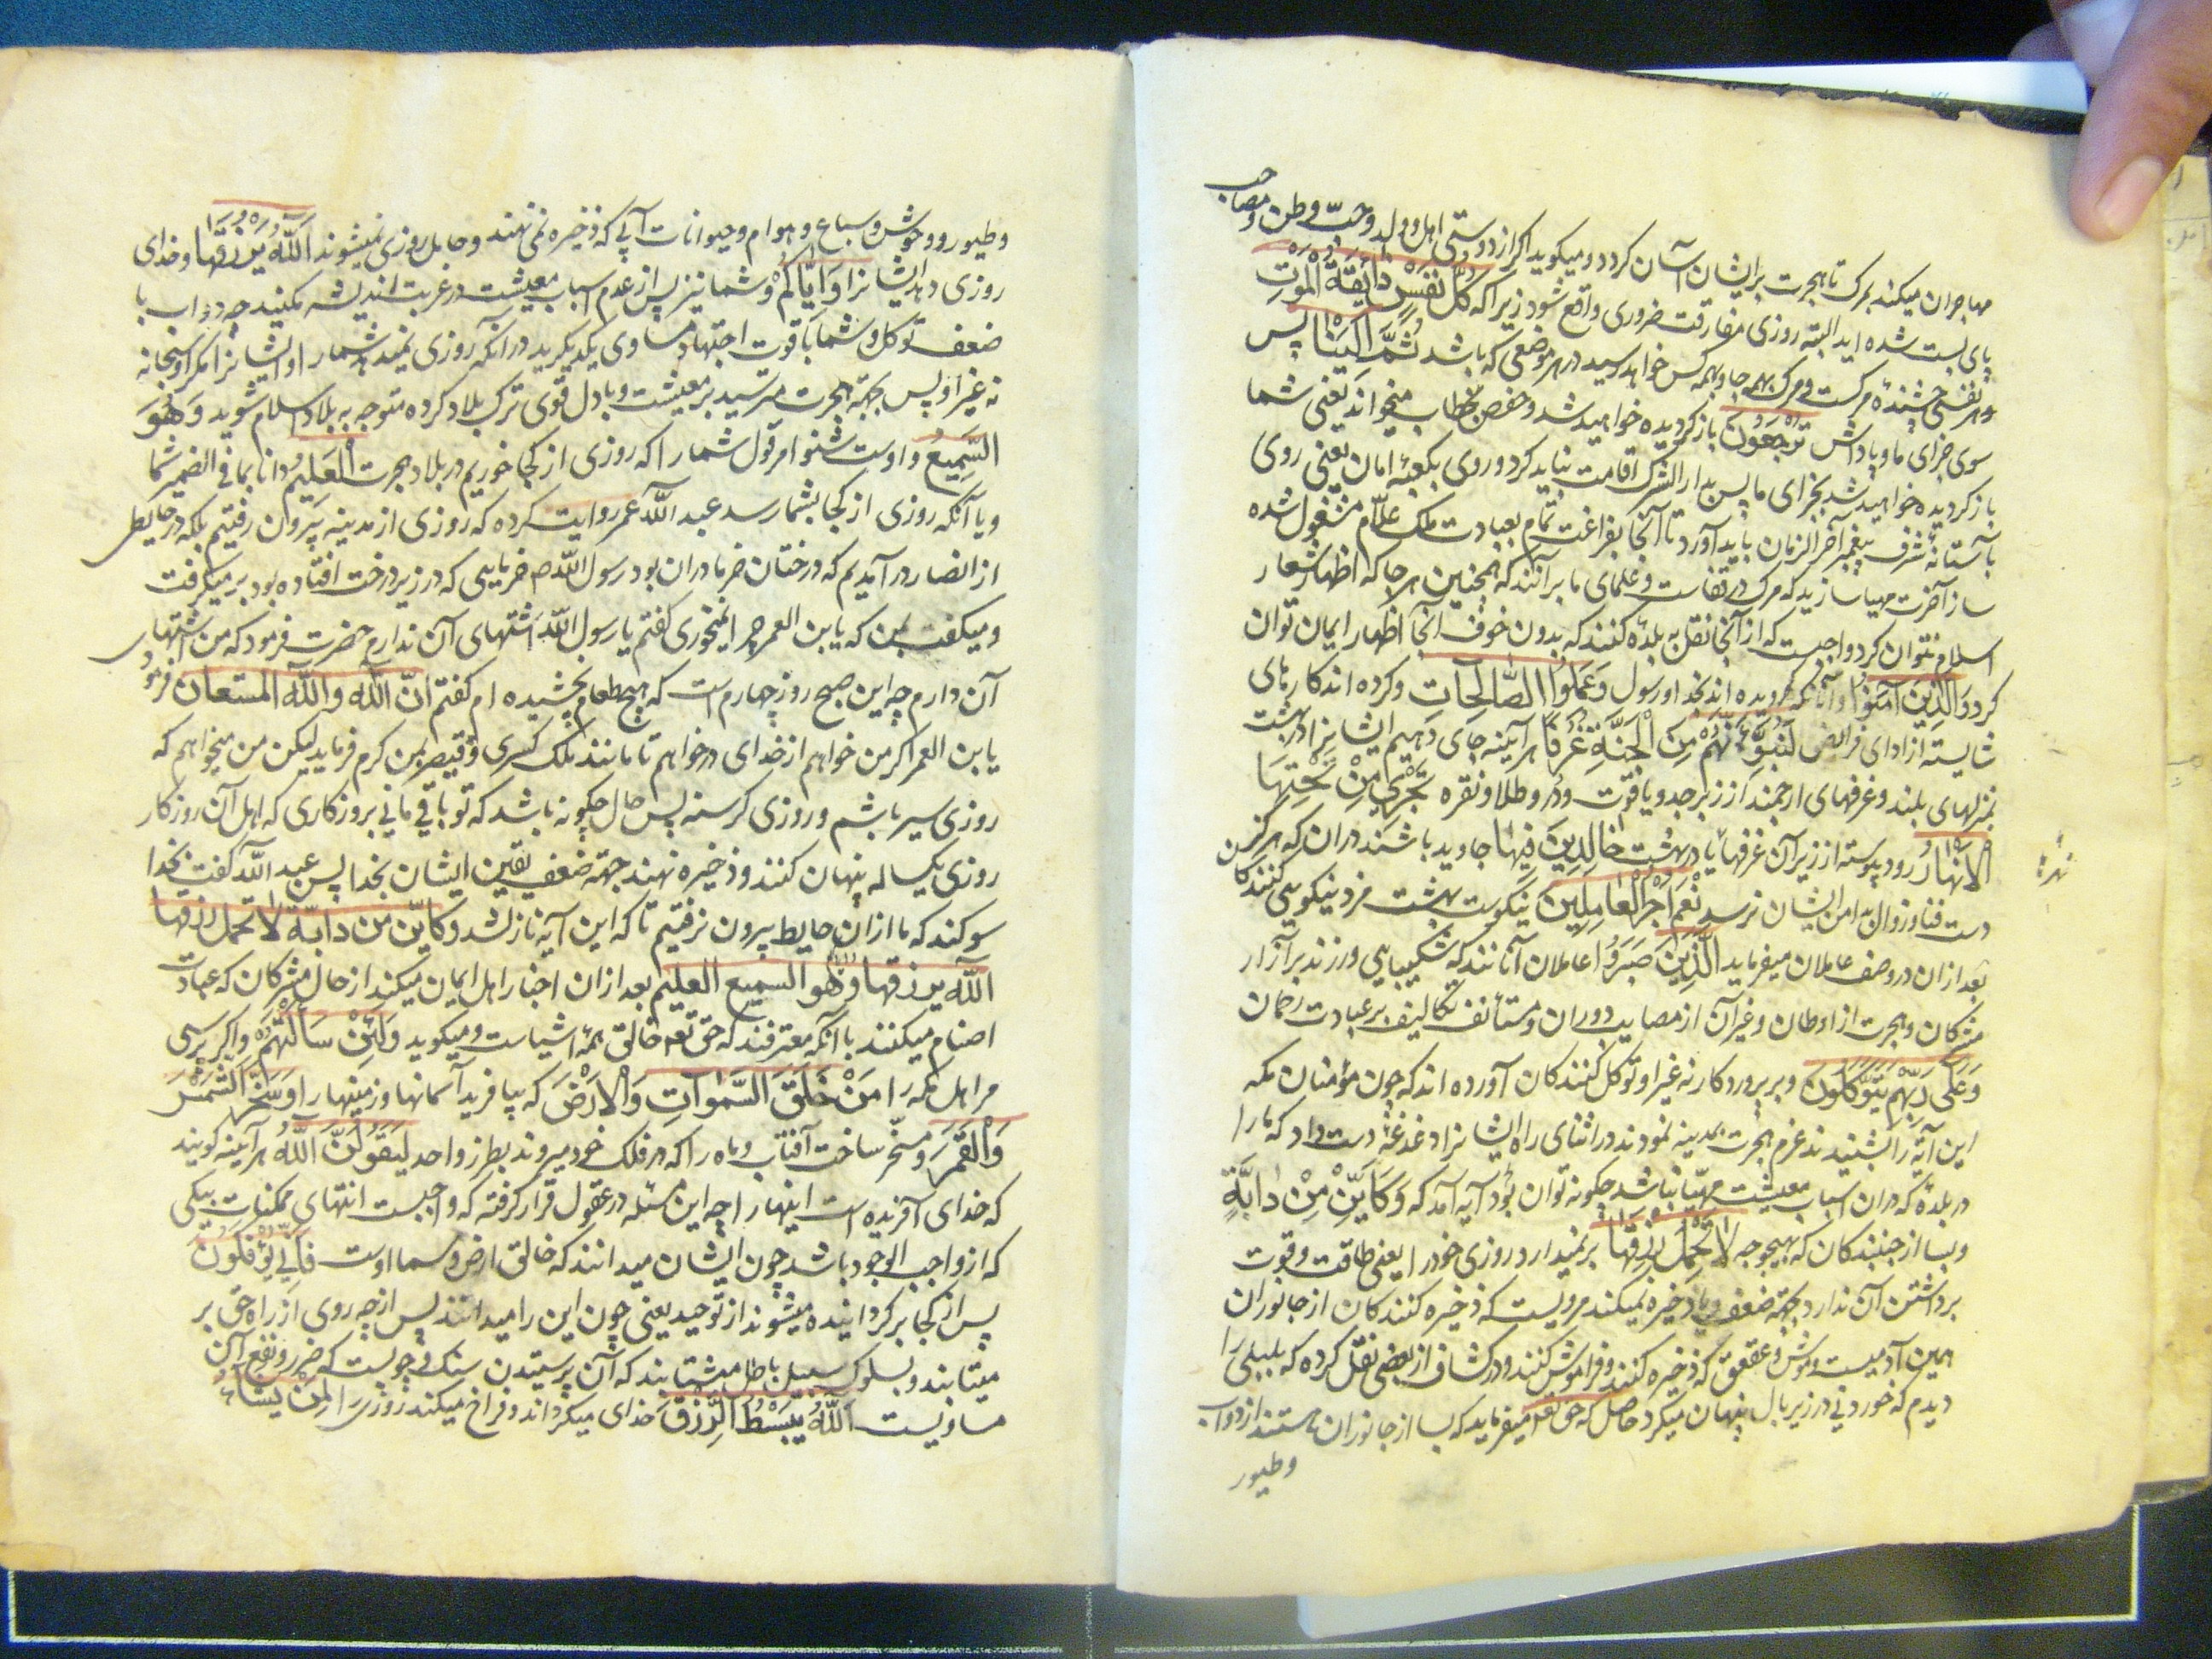 مهاجران میکند بمرک تا هجرت برایشان آسان کردد و میکوید اکر از دوستی اهل و ولد و حب وطن و مصاحب
پای بست شده اید البته روزی مفارقت ضروری واقع شود زیرا که کُلُّ نَفْسٍ ذَائِقَةُ الْمَوْتِ
هر نفسی چشندۀ مرکست و مرک بهمه جا و بهمه کس خواهد رسید در هر موضعی که باشد ثُمَّ اِلَیْنَا پس
سوی جزای ما و پاداش تُرْجَعُونَ بازکردیده خواهید شد و حفص بخطاب میخواند یعنی شما
بازکردیده خواهید شد بجزای ما پس بدار الشرک اقامت نباید کرد و روی بکعبۀ امان یعنی روی
بآستانۀ شرف پیغمبر آخر الزمان باید آورد تا آنجا بفراغت تمام بعبادت ملک علام مشغول شده
ساز آخرت مهیا سازید که مرک در قفاست و علمای ما برآنند که همچنین هر جا که اظهار شعار
اسلام نتوان کرد واجبست که از آنجا نقل به بلدۀ کنند که بدون خوف آنجا اظهار ایمان توان
کرد وَالَّذِینَ آمَنُوا و آنانکه کرویده اند بخدا و رسول وَعَمِلُوا الصَّالِحَاتِ و کرده اند کارهای
شایسته از ادای فرایض لَنُبَوِّئَنَّهُمْ مِنَ الْجَنَّةِ غُرَفًا هر آینه جای دهیم ایشانرا در بهشت
بمنزلهای بلند و غرفهای ارجمند از زبرجد و یاقوت و در و طلا و نقره تَجْرِی مِنْ تَحْتِهَا
الْاَنْهَارُ رود پیوسته از زیر آن غرفها یا در بهشت خَالِدِینَ فِیهَا جاوید باشند در ان که هرکز
دست فنا و زوال به دامن ایشان نرسد نِعْمَ اَجْرُ الْعَامِلِینَ نیکوست بهشت مزد نیکویی کنندکان
بعد ازان در وصف عاملان میفرماید الَّذِینَ صَبَرُوا عاملان آنانند که شکیبایی ورزند بر آزار
مشرکان و هجرت از اوطان و غیر آن از مصایب دوران و مستأنف تکالیف بر عبادت رحمان
وَعَلَی رَبِّهِمْ یَتَوَکَّلُونَ و بر پروردکار نه غیر او توکل کنندکان آورده اند که چون مؤمنان مکه
این آیه را شنیدند عزم هجرت بمدینه نمودند در اثنای راه ایشانرا دغدغه دست داد که ما را
در بلدۀ که دران اسباب معیشت مهیا نباشد چکونه توان بود آیه آمد که وَکَاَیِّنْ مِنْ دَابَّةٍ
و بسا از جنبندکان که بهیچوجه لَا تَحْمِلُ رِزْقَهَا برنمیدارد روزی خود را یعنی طاقت و قوت
برداشتن آن ندارد بجهة ضعف و یا ذخیره نمیکند مرویست که ذخیره کنندکان از جانوران
همین آدمیست و موش و عقعق که ذخیره کنند و فراموش کنند و در کشاف از بعضی نقل کرده که بلبلی را
دیدم که خوردنی در زیر بال پنهان میکرد حاصل که حق تعه میفرماید که بسا از جانوران هستند از دواب
وطیور
وطیور و وحوش و سباع و هوام و حیوانات آبی که ذخیره نمی نهند و حامل روزی نمیشوند اَللّٰهُ یَرْزُقُهَا خدای
روزی دهد ایشانرا وَاِیَّاکُمْ و شما نیز پس از عدم اسباب معیشت در غربت اندیشه مکنید چه دواب با
ضعف توکل و شما با قوت اجتهاد مساوی یکدیکرید در آنکه روزی نمیدهد شما را و ایشانرا مکر او سبحانه
نه غیر او پس بجهة هجرت مترسید بر معیشت و با دل قوی ترک بلاد کرده متوجه به بلاد اسلام شوید وَهُوَ
السَّمِیعُ و اوست شنوا مر قول شما را که روزی از کجا خوریم در بلاد هجرت الْعَلِیمُ دانا بما فی الضمیر شما
و یا آنکه روزی از کجا بشما رسد عبد اللّه عمر روایت کرده که روزی از مدینه بیرون رفتیم بلکه در حایطی
از انصار در آمدیم که درختان خرما دران بود رسول اللّه ص خرمایی که در زیر درخت افتاده بود بر میکرفت
و میکفت بمن که یابن العمر چرا نمیخوری کفتم یا رسول اللّه اشتهای آن ندارم حضرت فرمود که من اشتهای
آن دارم چه این صبح روز چهارم است که هیچ طعام نچشیده ام کفتم انّ اللّه و اللّه المستعان فرمود
یابن العمر اکر من خواهم از خدای درخواهم تا مانند ملک کسری و قیصر بمن کرم فرماید لیکن من میخواهم که
روزی سیر باشم و روزی کرسنه پس حال چکونه باشد که تو باقی مانی بروزکاری که اهل آن روزکار
روزی یکساله پنهان کنند و ذخیره نهند جهة ضعف یقین ایشان بخدا پس عبد اللّه کفت بخدا
سوکند که ما ازان حایط بیرون نرفتیم تا که این آیه نازلشد وکایّن من دابّة لا تحمل رزقها
اللّه یرزقها و هو السمیع العلیم بعد ازان اخبار اهل ایمان میکند از حال مشرکان که عبادت
اصنام میکنند با آنکه معترفند که حق تعه خالق همۀ اشیاست و میکوید وَلَئِنْ سَاَلْتَهُمْ و اکر پرسی
مر اهل مکه را مَنْ خَلَقَ السَّمٰوَاتِ وَالْاَرْضَ که بیافرید آسمانها و زمینها را وَسَخَّرَ الشَّمْسَ
وَالْقَمَرَ و مسخر ساخت آفتاب و ماه را که در فلک خود میروند بطرز واحد لَیَقُولُنَّ اللّٰهُ هر آینه کویند
که خدای آفریده است اینها را چه این مسئله در عقول قرار کرفته که واجبست انتهای ممکنات بیکی
که او واجب الوجود باشد چون ایشان میدانند که خالق ارض و سما اوست فَاَنَّی یُؤْفَکُونَ
پس از کجا برکردانیده میشوند از توحید یعنی چون این را میدانند پس از چه روی از راه حق بر
میتابند و بسلوک سبیل باطل میشتابند که آن پرستیدن سنک و چوبست که ضرر و نفع آن
مساویست اَللّٰهُ یَبْسُطُ الرِّزْقَ خدای میکرداند و فراخ میکند روزی را لِمَنْ یَشَاءُ